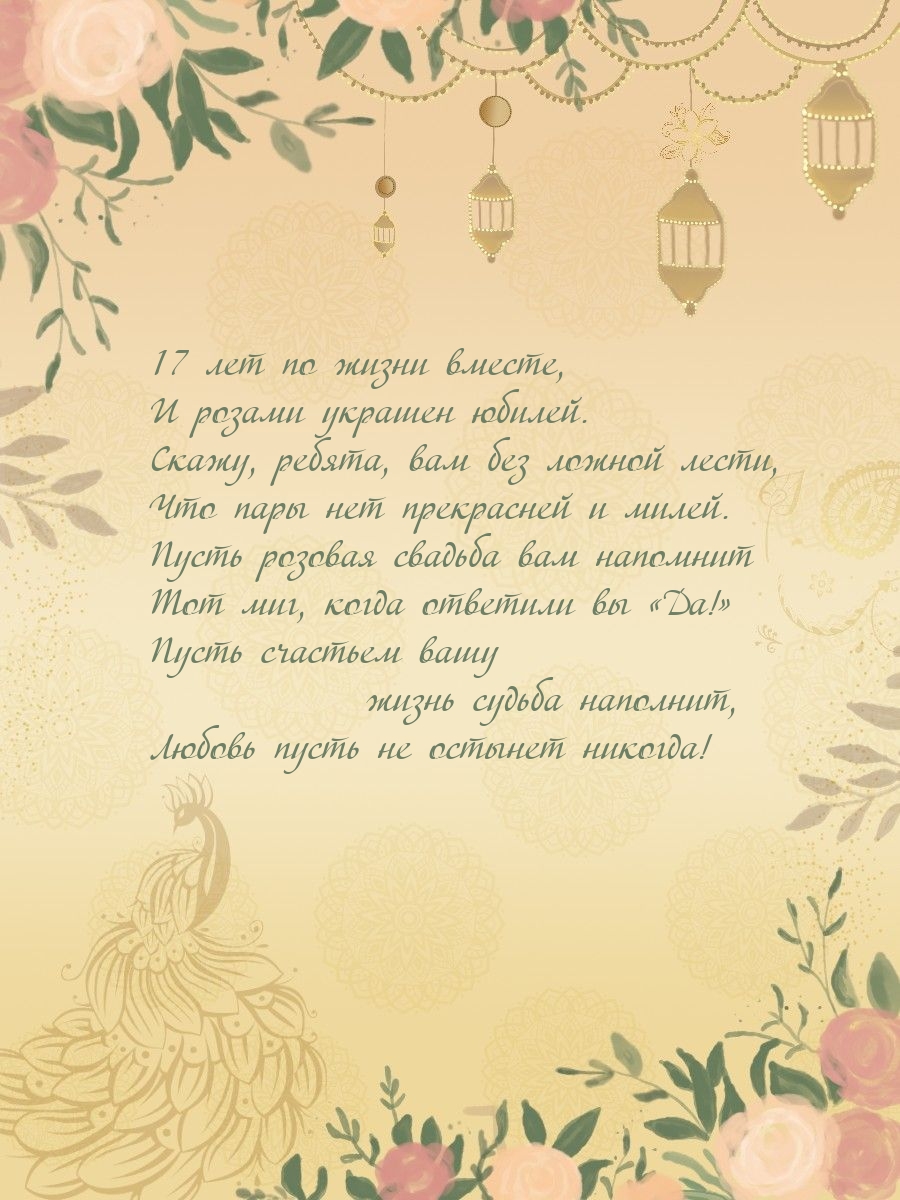 17 лет по жизни вместе,
И розами украшен юбилей.
Скажу, ребята, вам без ложной лести,
Что пары нет прекрасней и милей.
Пусть розовая свадьба вам напомнит
Тот миг, когда ответили вы «Да!»
Пусть счастьем вашу
жизнь судьба наполнит,
Любовь пусть не остынет никогда!